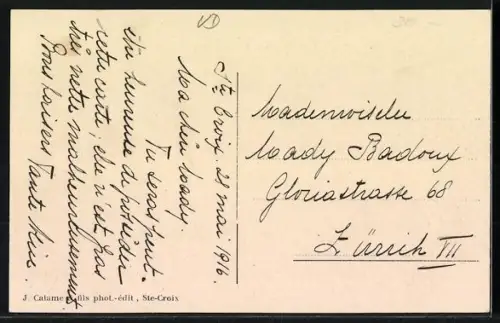 Ste Croix 28 mai 1916.
Ma chère Mady.
Tu seras peut-
être heureuse de posséder
cette carte; elle n'est pas
très nette malheureusement
Bons baisers Tante
Mademoiselle
Mady Badoux
Gloriastrasse 68
Zürich VII
J. Calame & fils phot.-édit, Ste-Croix